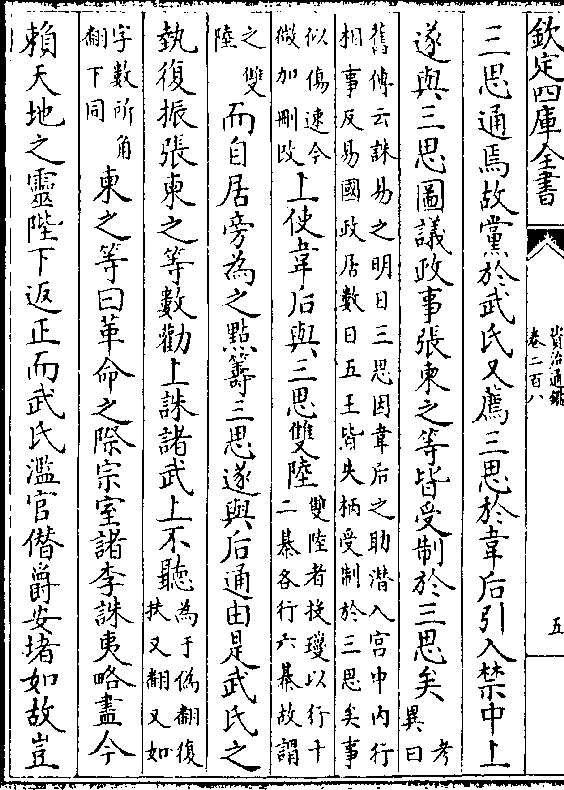 欽定四庫全書
資治通鑑
卷二百八
五
三思通焉故黨於武氏又薦三思於韋后引入禁中上
遂與三思圖議政事張柬之等皆受制於三思矣考
異曰
舊傳云誅易之明日三思因韋后之助潛入宫中内行
相事反易國政居數日五王皆失柄受制於三思矣事
似傷速今
微加刪改上使韋后與三思雙陸雙陸者投瓊以行十
二棊各行六棊故謂
之雙
陸而自居旁為之點籌三思遂與后通由是武氏之
埶復振張柬之等數勸上誅諸武上不聽為于偽翻復
扶又翻又如
字數所角
翻下同柬之等曰革命之際宗室諸李誅夷略盡今
賴天地之靈陛下返正而武氏濫官僭爵安堵如故豈